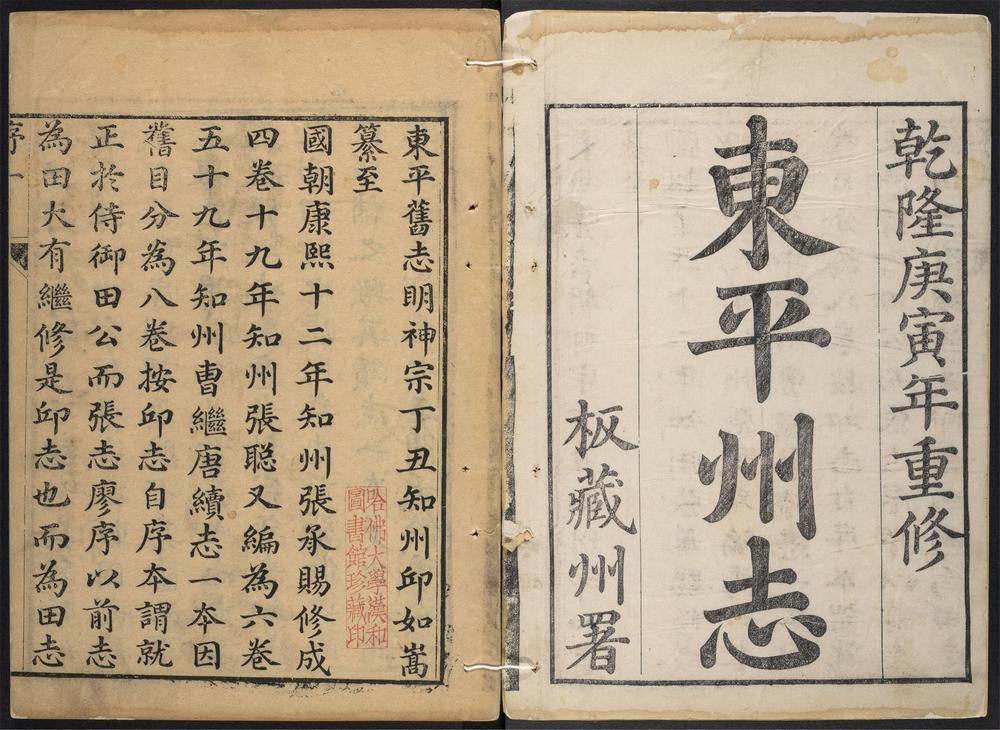 乾隆庚寅年重修
東平州志
板藏州署
東平舊志明神宗丁丑知州邱如嵩
纂至
國朝康熙十二年知州張承賜修成
四卷十九年知州張聰又編為六卷
五十九年知州曹繼唐續志一本因
舊目分為八卷按邱志自序本謂就
正於侍御田公而張志廖序以前志
為田大有繼修是邱志也而為田志
序 一
哈佛大學漢和
圖書館珍藏印